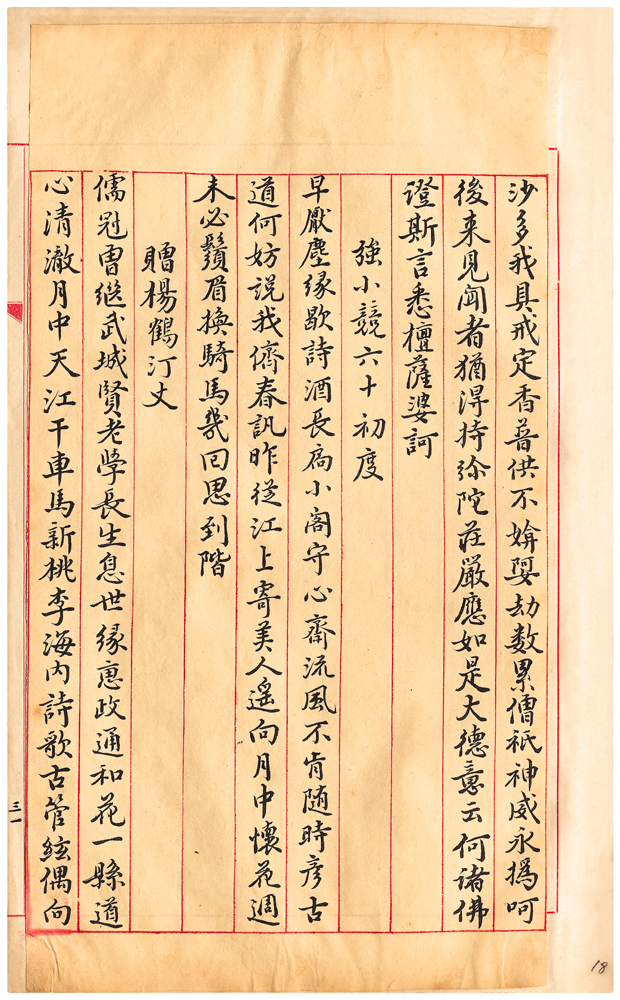 沙多我具戒定香普供不媕娿劫数累僧祇神威永撝呵
後来見聞者猶得持弥陀莊嚴應如是大德意云何诸佛
證斯言悉檀薩婆訶
強小競六十初度
早厭塵緣歇詩酒長扃小閣守心齋流風不肯随時彦古
道何妨説我儕春訊昨從江上寄美人遥向月中懷花週
未必鬚眉換騎馬幾回思到階
贈楊鶴汀丈
儒冠曾继武城賢老學長生息世缘惠政通和花一縣道
心清澈月中天江干車馬新桃李海内詩歌古管絃偶向
三一
18